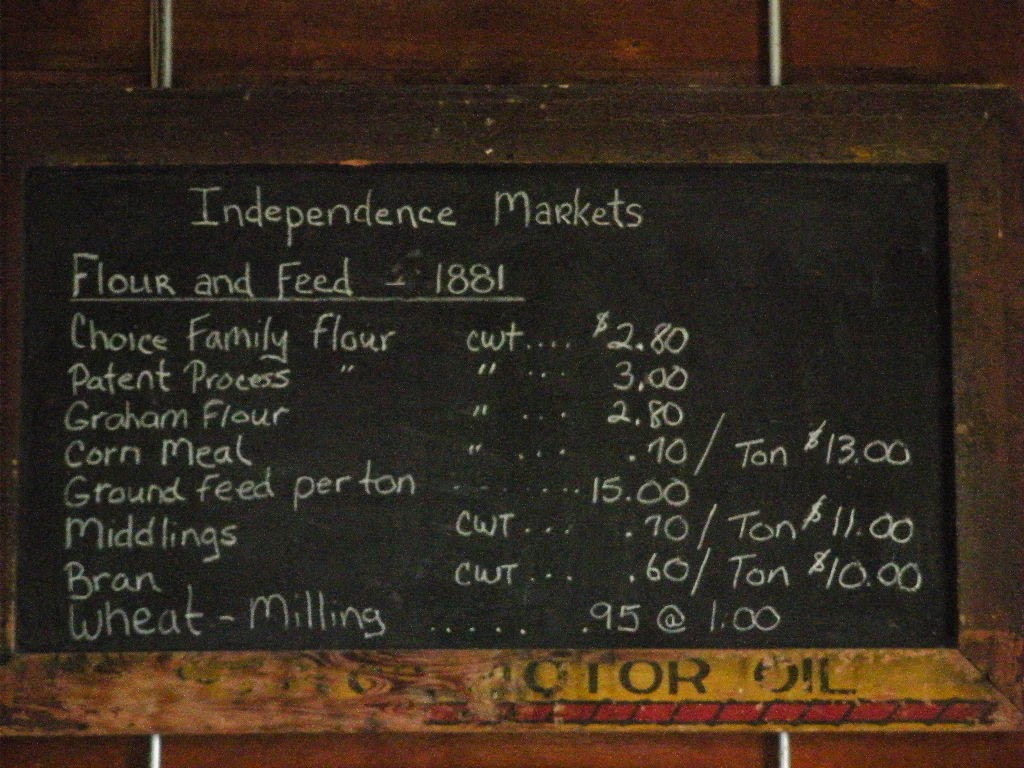 Independence Markets
Flour and Feed - 1881
Choice Family Flour cwt.... $2.80
Patent Process " " ... 3.00
Graham Flour " ... 2.80
Corn Meal " ... .70 / Ton $13.00
Ground feed per ton ........ 15.00
Middlings CWT... .70 / Ton $11.00
Bran CWT... .60 / Ton $10.00
Wheat - Milling ..... .95 @ 1.00
OTOR OIL